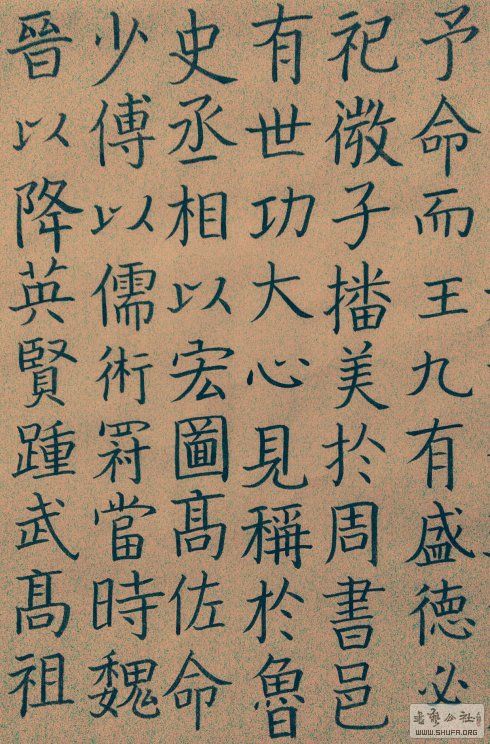 予命而王九有盛德必
祀微子播美於周書邑
有世功大心見稱於魯
史丞相以宏圖髙佐命
少傅以儒術冠當時魏
晉以降英賢踵武髙祖
书艺公社
WWW.SHUFA.ORG